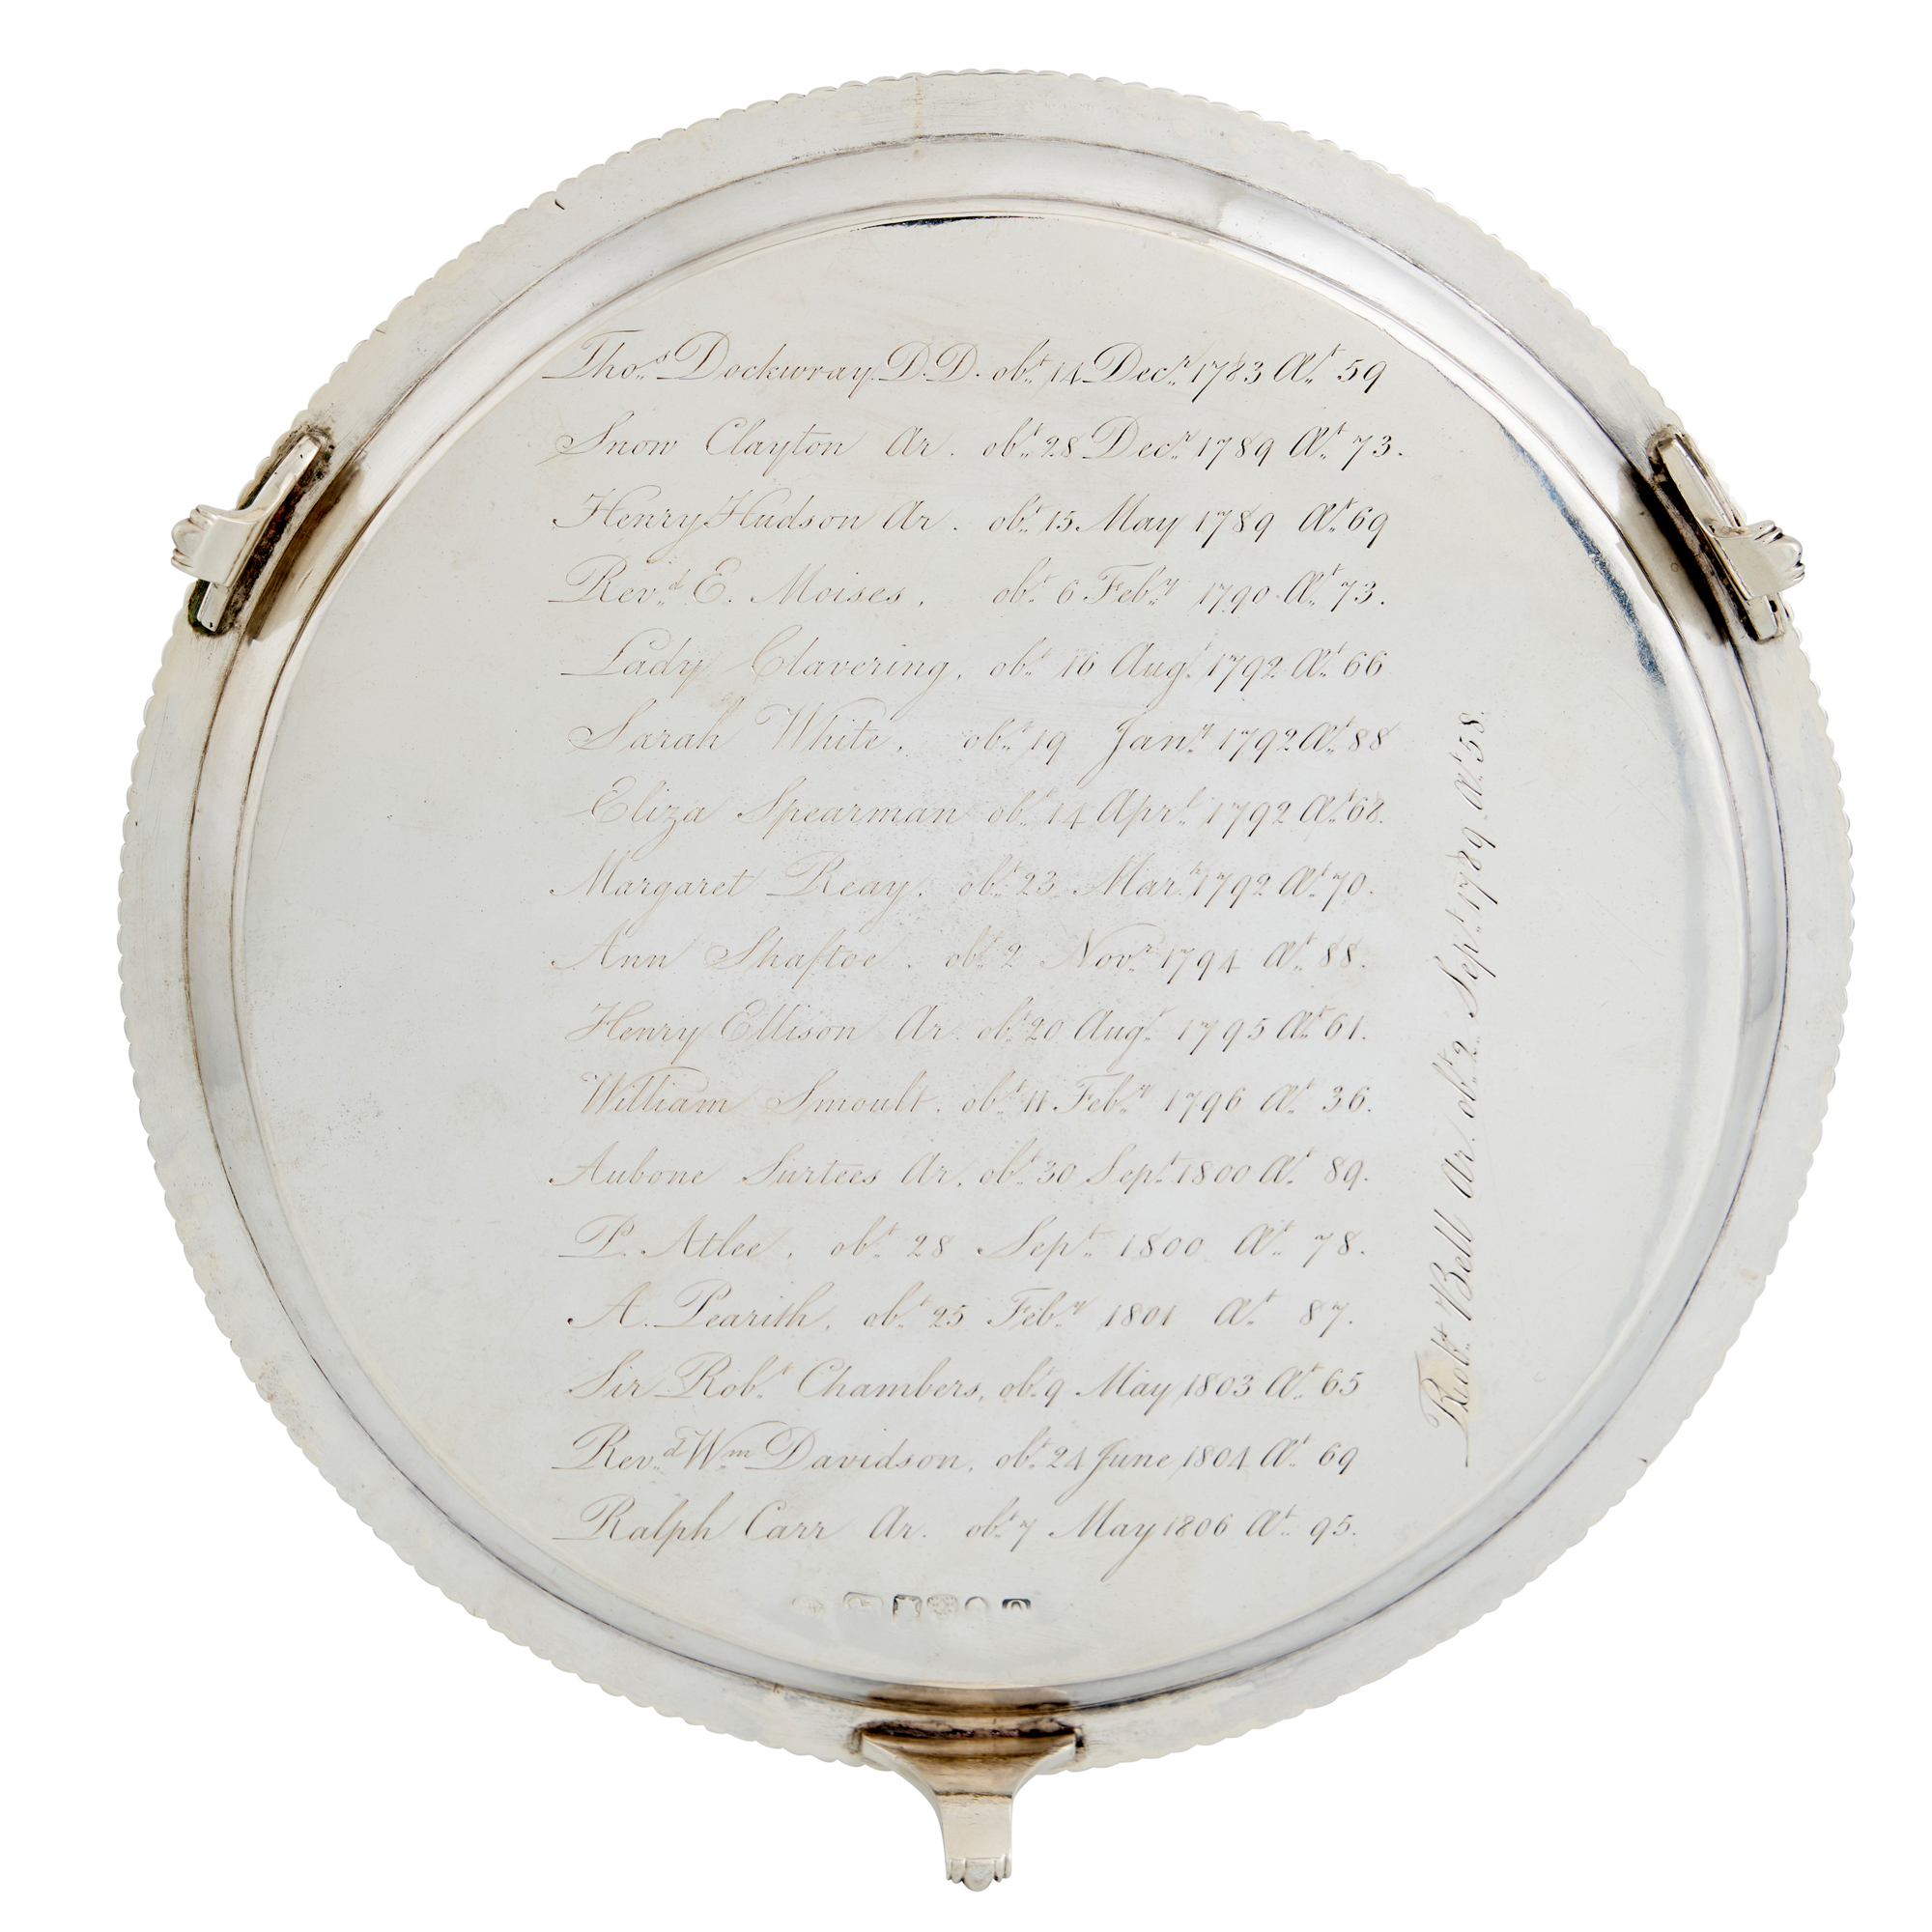 Thos. Dockwray. D.D. obt. 14 Decr. 1783 Æt. 59
Snow Clayton Ar. obt. 28 Decr. 1789 Æt. 73.
Henry Hudson Ar. obt. 15 May 1789 Æt. 69
Revd. E. Moises, obt. 6 Feby. 1790 Æt. 73.
Lady Clavering, obt. 16 Augt. 1792 Æt. 66
Sarah White, obt. 19 Jany. 1792 Æt. 88
Eliza Spearman obt. 14 Aprl. 1792 Æt. 68.
Margaret Reay. obt. 23 Marh. 1792 Æt. 70.
Ann Shaftoe. obt. 2 Novr. 1794 Æt. 88.
Henry Ellison Ar. obt. 20 Augt. 1795 Æt. 61.
William Smoult. obt. 11 Feby. 1796 Æt. 36.
Aubone Surtees Ar. obt. 30 Sept. 1800 Æt. 89.
P. Atlee, obt. 28 Sept. 1800 Æt. 78.
A. Pearith, obt. 25 Feby. 1801 Æt. 87.
Sir Robt. Chambers, obt. 9 May 1803 Æt. 65
Revd. Wm. Davidson, obt. 24 June 1804 Æt. 69
Ralph Carr Ar. obt. 7 May 1806 Æt. 95.
Robt. Bell Ar. obt. 2 Sept. 1789 Æt. 58.